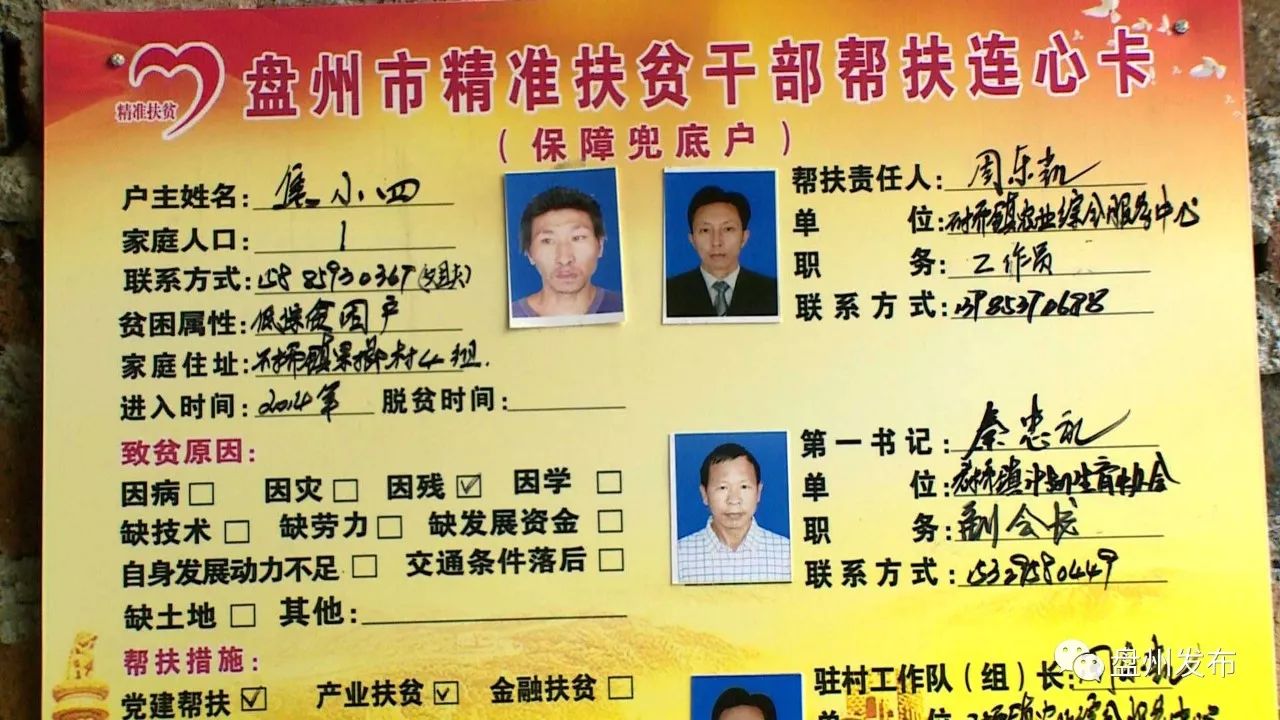 盘州市精准扶贫干部帮扶连心卡
精准扶贫
(保障兜底户)
户主姓名: 焦小四
家庭人口: 1
联系方式: 15885930367
贫困属性: 低保贫困户
家庭住址: 石桥镇 村4组.
进入时间: 2014年 脱贫时间:
致贫原因:
因病□ 因灾□ 因残☑ 因学□
缺技术□ 缺劳力□ 缺发展资金□
自身发展动力不足□ 交通条件落后□
缺土地□ 其他:
帮扶措施:
党建帮扶☑ 产业扶贫☑ 金融扶贫□
帮扶责任人: 周乐凯
单位: 石桥镇农业综合服务中心
职务: 工作员
联系方式:
第一书记: 秦忠礼
单位: 石桥镇计划生育协会
职务: 副会长
联系方式: 15329580449
驻村工作队(组)长:
单位: 石桥镇农业综合服务中心
盘州发布